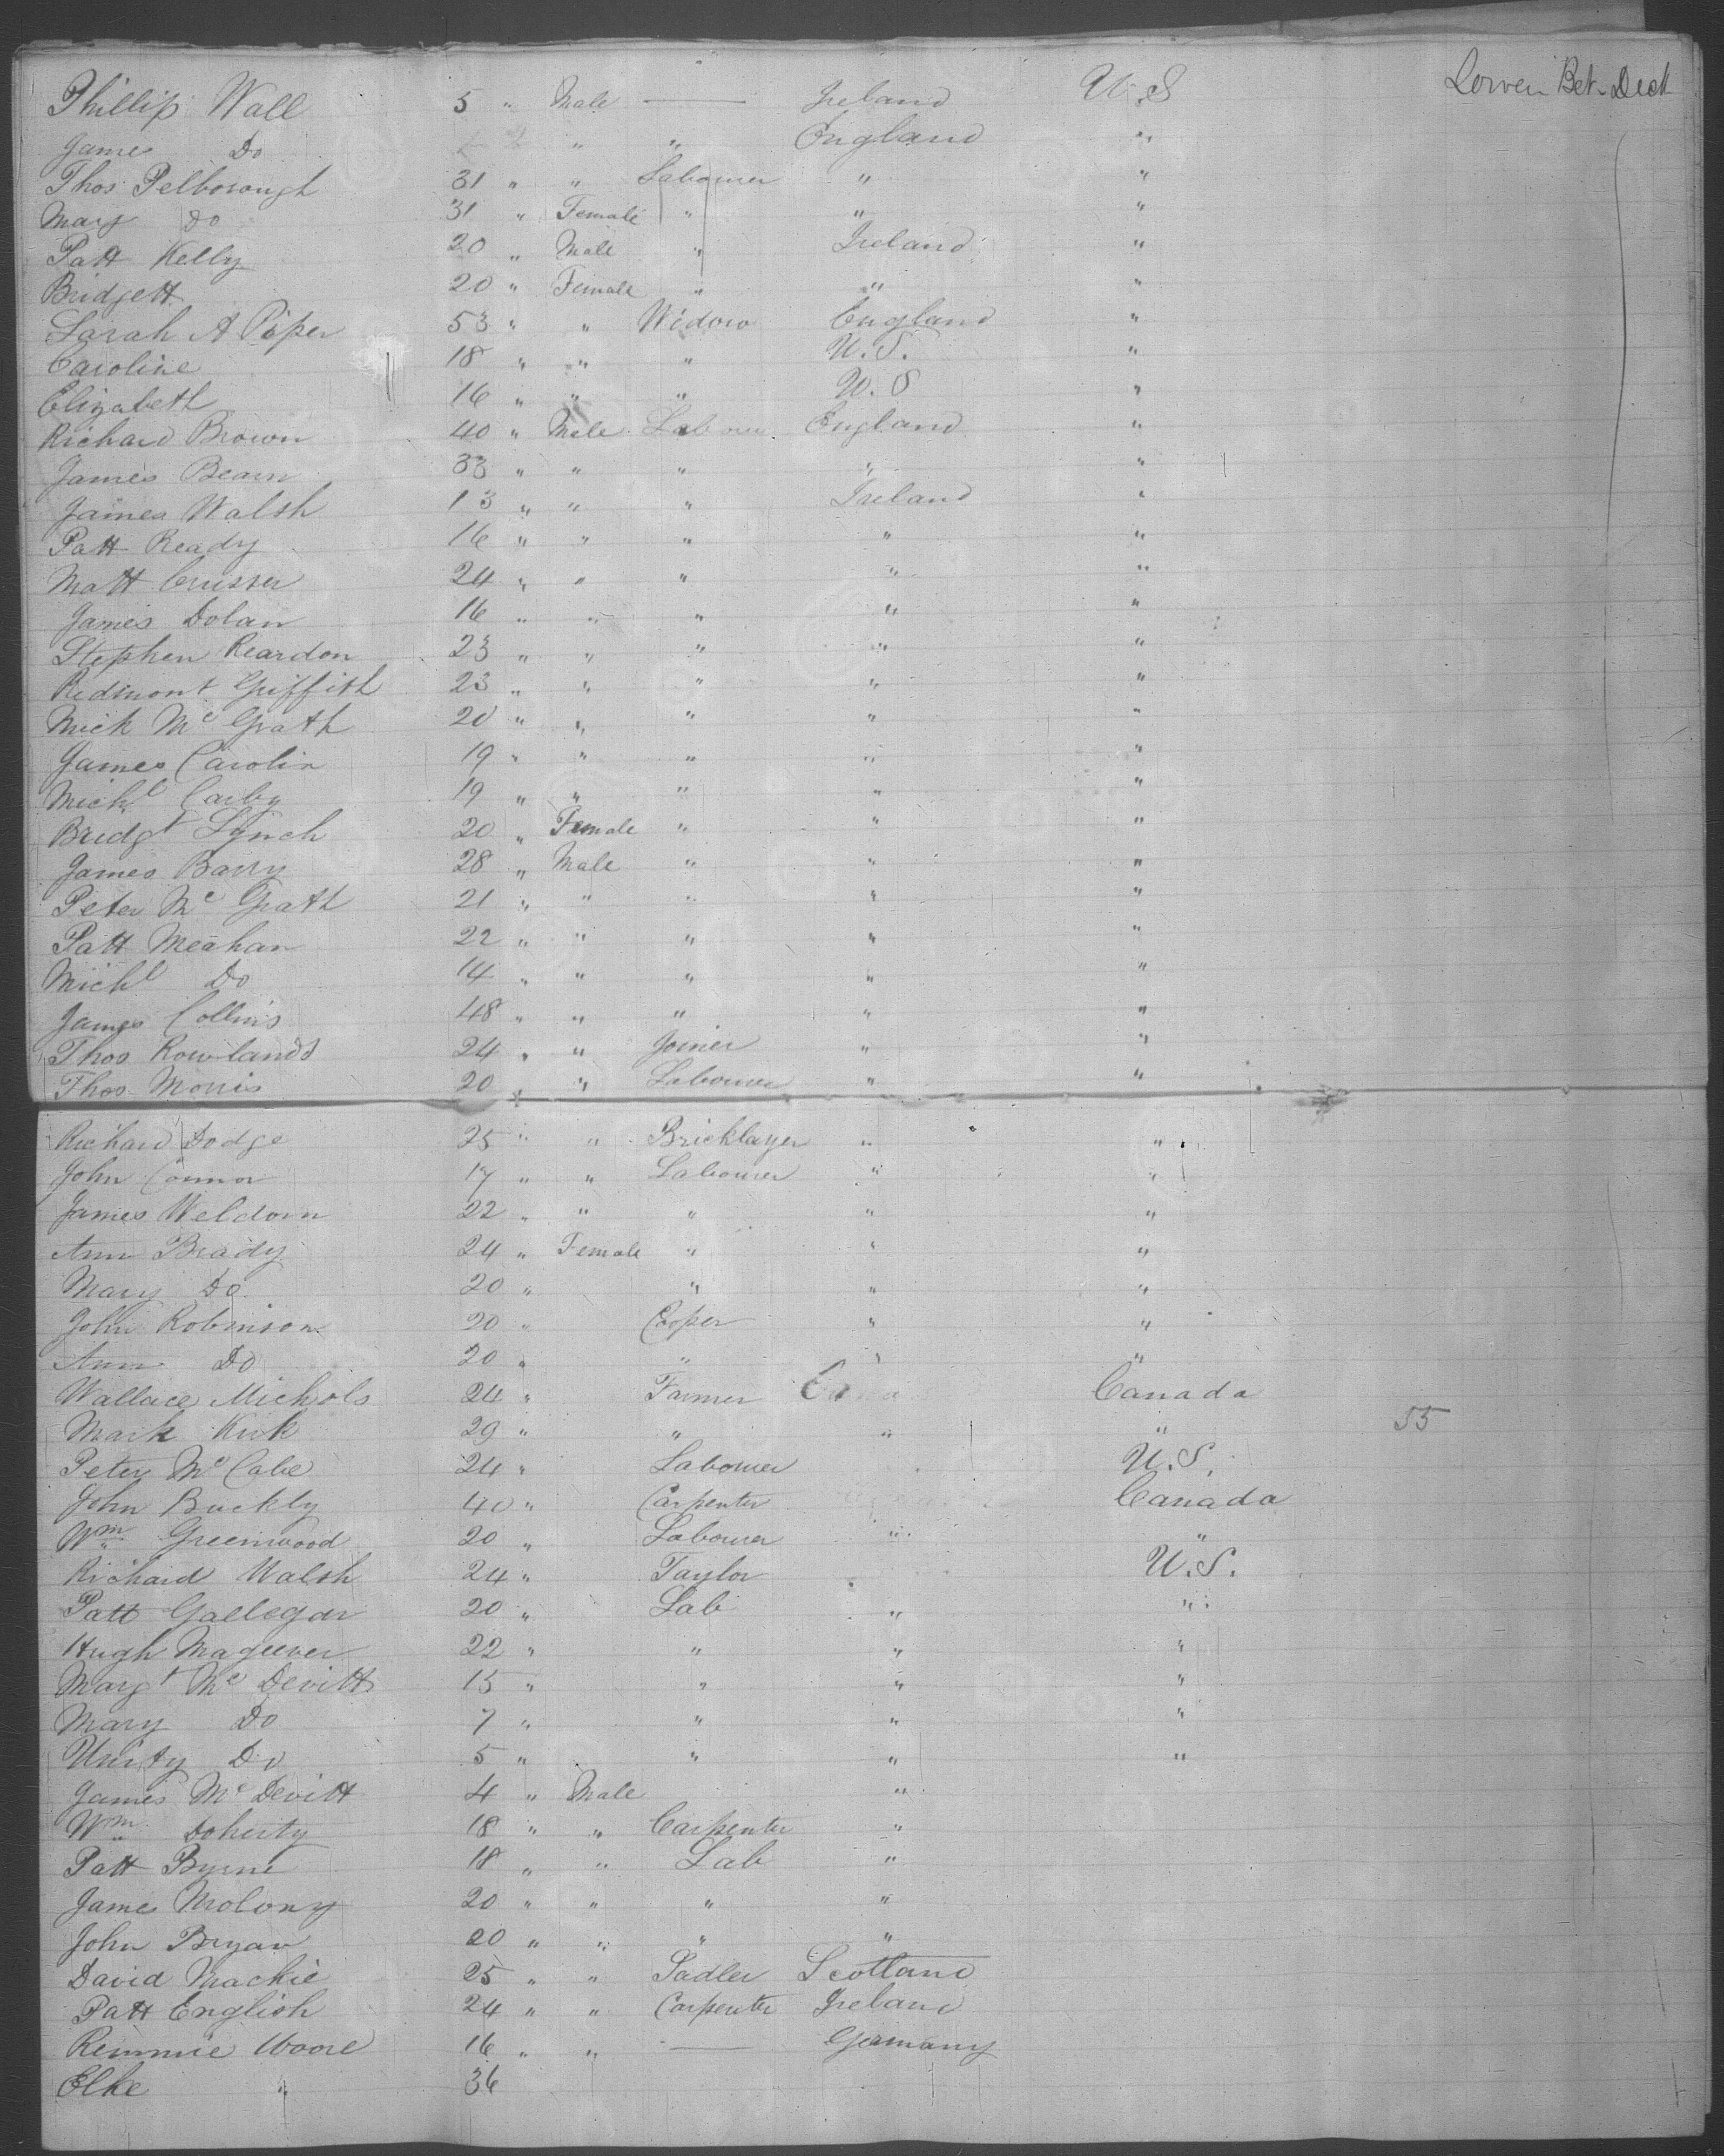 Phillip Wall 5 " Male — Ireland U.S Lower Bet. Deck
James Do " " England "
Thos Pelborough 31 " " Labourer " "
Mary Do 31 " Female " " "
Patt Kelly 20 " Male " Ireland "
Bridgett 20 " Female " " "
Sarah A Piper 53 " " Widow England "
Caroline 18 " " " U.S. "
Elizabeth 16 " " " U.S "
Richard Brown 40 " Male Labour England "
James Bearn 33 " " " " "
James Walsh 13 " " " Ireland "
Patt Ready 16 " " " " "
Matt 24 " " " " "
James Dolan 16 " " " " "
Stephen Reardon 23 " " " " "
Redmont Griffith 23 " " " " "
Mick Mc Grath 20 " " " " "
James Carolin 19 " " " " "
Michl Carby 19 " " " " "
Bridgt Lynch 20 " Female " " "
James Barry 28 " Male " " "
Peter Mc Grath 21 " " " " "
Patt Meahan 22 " " " " "
Michl Do 14 " " " " "
James Collins 48 " " " " "
Thos Rowlands 24 " " Joiner " "
Thos Morris 20 " " Labourer " "
Richard Dodge 25 " " Bricklayer " "
John Connor 17 " " Labourer " "
James Weldorn 22 " " " " "
Ann Brady 24 " Female " " "
Mary Do 20 " " " "
John Robinson 20 " Cooper " "
Ann Do 20 " " " "
Wallace Michols 24 " Farmer Canada
Mark Kirk 29 " " " " 55
Peter Mc Cabe 24 " Labourer U.S.
John Buckly 40 " Carpenter Canada
Wm Greenwood 20 " Labourer " "
Richard Walsh 24 " Taylor U.S.
Patt Gallegar 20 " Lab " "
Hugh Mageever 22 " " " "
Margt Mc Devitt 15 " " " "
Mary Do 7 " " " "
Unity Do 5 " " " "
James Mc Devitt 4 " Male "
Wm Doherty 18 " " Carpenter "
Patt Byrne 18 " " Lab "
James Molony 20 " " " "
John Bryan 20 " " " "
David Mackie 25 " " Sadler Scotland
Patt English 24 " " Carpenter Ireland
Remmie Woore 16 " " — Germany
Elke " 36